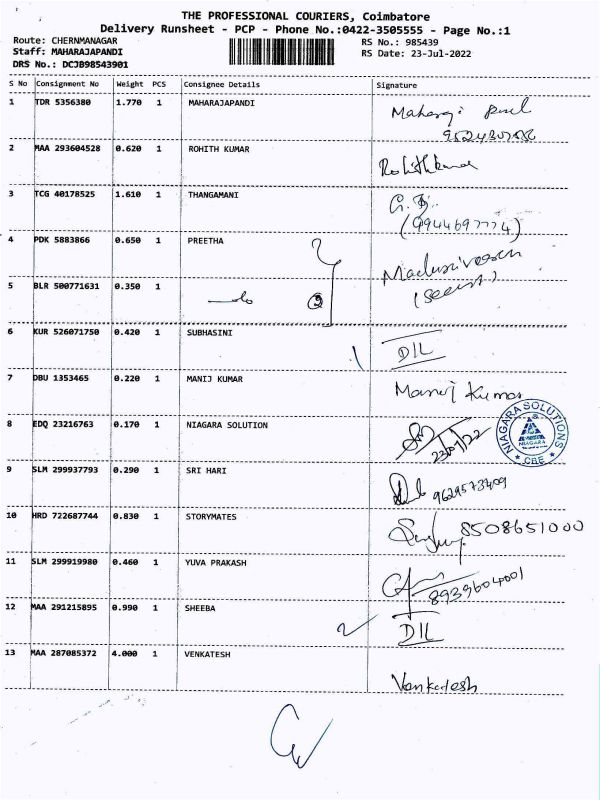 THE PROFESSIONAL COURIERS, Coimbatore
Delivery Runsheet - PCP - Phone No.:0422-3505555 - Page No.:1
Route: CHERNMANAGAR RS No.: 985439
Staff: MAHARAJAPANDI RS Date: 23-Jul-2022
DRS No.: DCJB98543901
S No Consignment No Weight PCS Consignee Details Signature
1 TDR 5356380 1.770 1 MAHARAJAPANDI
2 MAA 293604528 0.620 1 ROHITH KUMAR Rohithkumar
3 TCG 40178525 1.610 1 THANGAMANI
(9944697774)
4 PDK 5883866 0.650 1 PREETHA
5 BLR 500771631 0.350 1 do 2
6 KUR 526071750 0.420 1 SUBHASINI DIL
7 DBU 1353465 0.220 1 MANIJ KUMAR Manij Kumar
8 EDQ 23216763 0.170 1 NIAGARA SOLUTION 23/07/22 NIAGARA SOLUTIONS NIAGARA * CBE *
9 SLM 299937793 0.290 1 SRI HARI 9629573409
10 HRD 722687744 0.830 1 STORYMATES 8508651000
11 SLM 299919980 0.460 1 YUVA PRAKASH 8939604001
12 MAA 291215895 0.990 1 SHEEBA DIL
13 MAA 287085372 4.000 1 VENKATESH Venkatesh